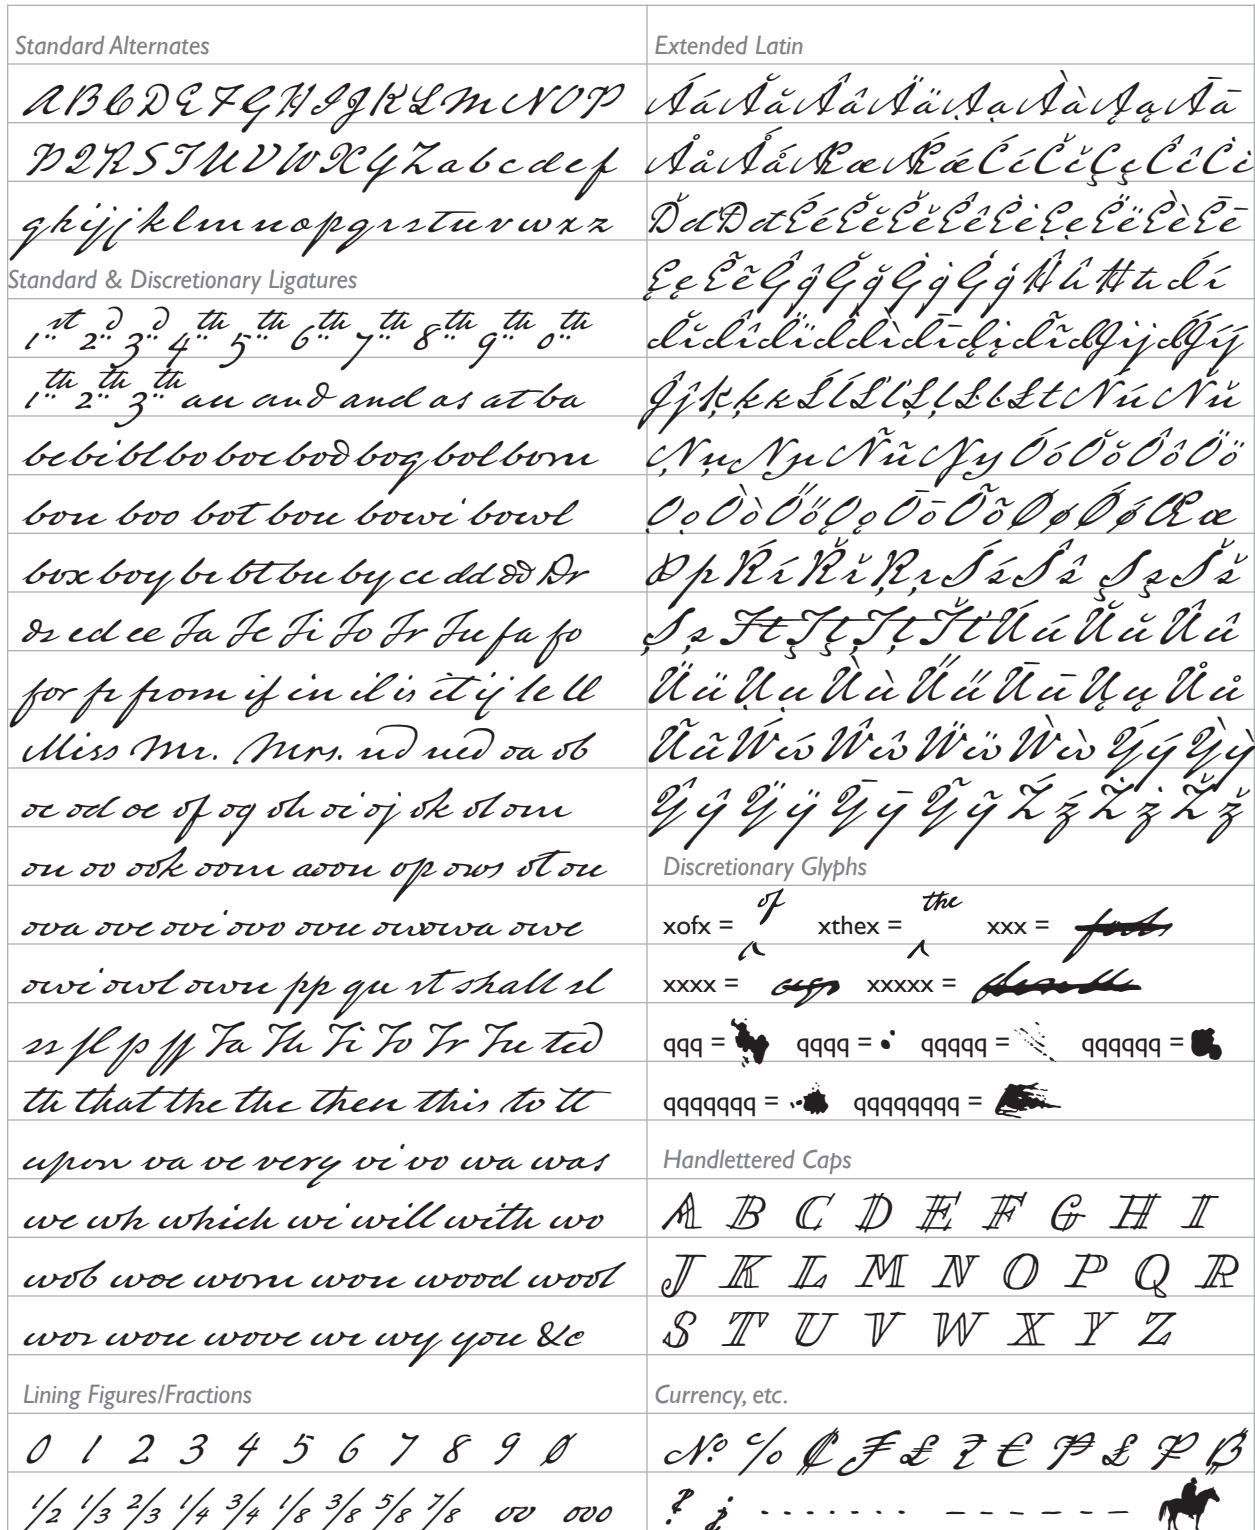 Standard Alternates
A B C D E F G H I J K L M N O P
P Q R S T U V W X Y Z a b c d e f
g h i j j k l m n o p q r s t u v w x z
Standard & Discretionary Ligatures
1st 2d 3d 4th 5th 6th 7th 8th 9th 0th
1th 2th 3th an and and as at ba
be bi bl bo boe bod bog bol bom
bon boo bot bou bowi bowl
box boy br bt bu by cc dd dd Dr
ds ed ee Fa Fe Fi Fo Fr Fu fa fo
for fr from if in il is it ij le ll
Miss Mr. Mrs. nd ned oa ob
oc od oe of og oh oi oj ok ol om
on oo ook oom aoon op ows ot ou
ova ove ovi ovo ovu owowa owe
owi owl own pp qu rt shall sl
ss fl p ff Ta Th Ti To Tr Tu ted
th that the the then this to tt
upon va ve very vi vo wa was
we wh which wi will with wo
wob woe wom won wood wool
wor wou wove wr wy you &c
Lining Figures/Fractions
0 1 2 3 4 5 6 7 8 9 0
1/2 1/3 2/3 1/4 3/4 1/8 3/8 5/8 7/8 oo ooo
Extended Latin
Á á Ă ă Â â Ä ä Ạ ạ À à Ą ą Ā ā
Å å Ǻ ǻ Æ æ Ǽ ǽ Ć ć Č č Ç ç Ĉ ĉ Ċ ċ
Ď ď Đ đ É é Ĕ ĕ Ě ě Ê ê Ė ė Ẹ ẹ Ë ë È è Ē ē
Ę ę Ẽ ẽ Ĝ ĝ Ğ ğ Ġ ġ Ģ ģ Ĥ ĥ Ħ ħ Í í
Ĭ ĭ Î î Ï ï İ Ì ì Ī ī Į į Ĩ ĩ IJ ij ÍJ́ íj́
Ĵ ĵ Ķ ķ ĸ Ĺ ĺ Ľ ľ Ļ ļ Ŀ ŀ Ł ł Ń ń Ň ň
Ņ ņ Ŋ ŋ Ñ ñ Ny Ó ó Ŏ ŏ Ô ô Ö ö
Ọ ọ Ò ò Ő ő Ǫ ǫ Ō ō Õ õ Ø ø Ǿ ǿ Œ œ
Þ þ Ŕ ŕ Ř ř Ŗ ŗ Ś ś Ŝ ŝ Ş ş Š š
Ș ș Ŧ ŧ Ţ ţ Ț ț Ť ť Ú ú Ŭ ŭ Û û
Ü ü Ụ ụ Ù ù Ű ű Ū ū Ų ų Ů ů
Ũ ũ Ẃ ẃ Ŵ ŵ Ẅ ẅ Ẁ ẁ Ý ý Ỳ ỳ
Ŷ ŷ Ÿ ÿ Ȳ ȳ Ỹ ỹ Ź ź Ż ż Ž ž
Discretionary Glyphs
xofx = of xthex = the xxx =
xxxx = xxxxx =
qqq = qqqq = qqqqq = qqqqqq =
qqqqqqq = qqqqqqqq =
Handlettered Caps
A B C D E F G H I
J K L M N O P Q R
S T U V W X Y Z
Currency, etc.
№ ℅ ₡ ₣ £ ₹ € ₱ £ ₽ ₿